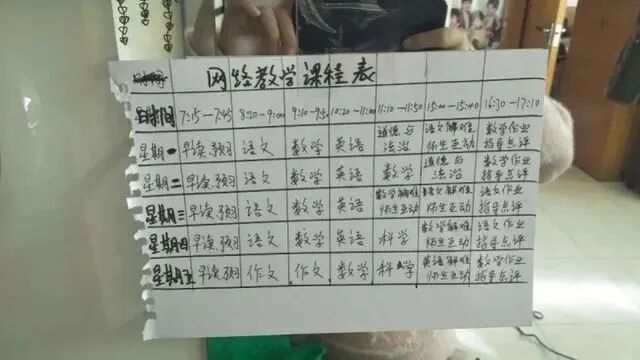 网络教学课程表
时间 7:15-7:45 8:20-9:00 9:10-9:50 10:20-11:00 11:10-11:50 15:00-15:40 16:30-17:10
星期一 早读.预习 语文 数学 英语 道德与法治 语文解难师生互动 数学作业指导点评
星期二 早读.预习 语文 数学 英语 数学 道德与法治 数学作业指导点评
星期三 早读.预习 语文 数学 英语 数学解难师生互动 语文解难师生互动 语文作业指导点评
星期四 早读.预习 语文 数学 英语 科学 数学解难师生互动 语文作业指导点评
星期五 早读.预习 作文 作文 数学 科学 英语解难师生互动 数学作业指导点评